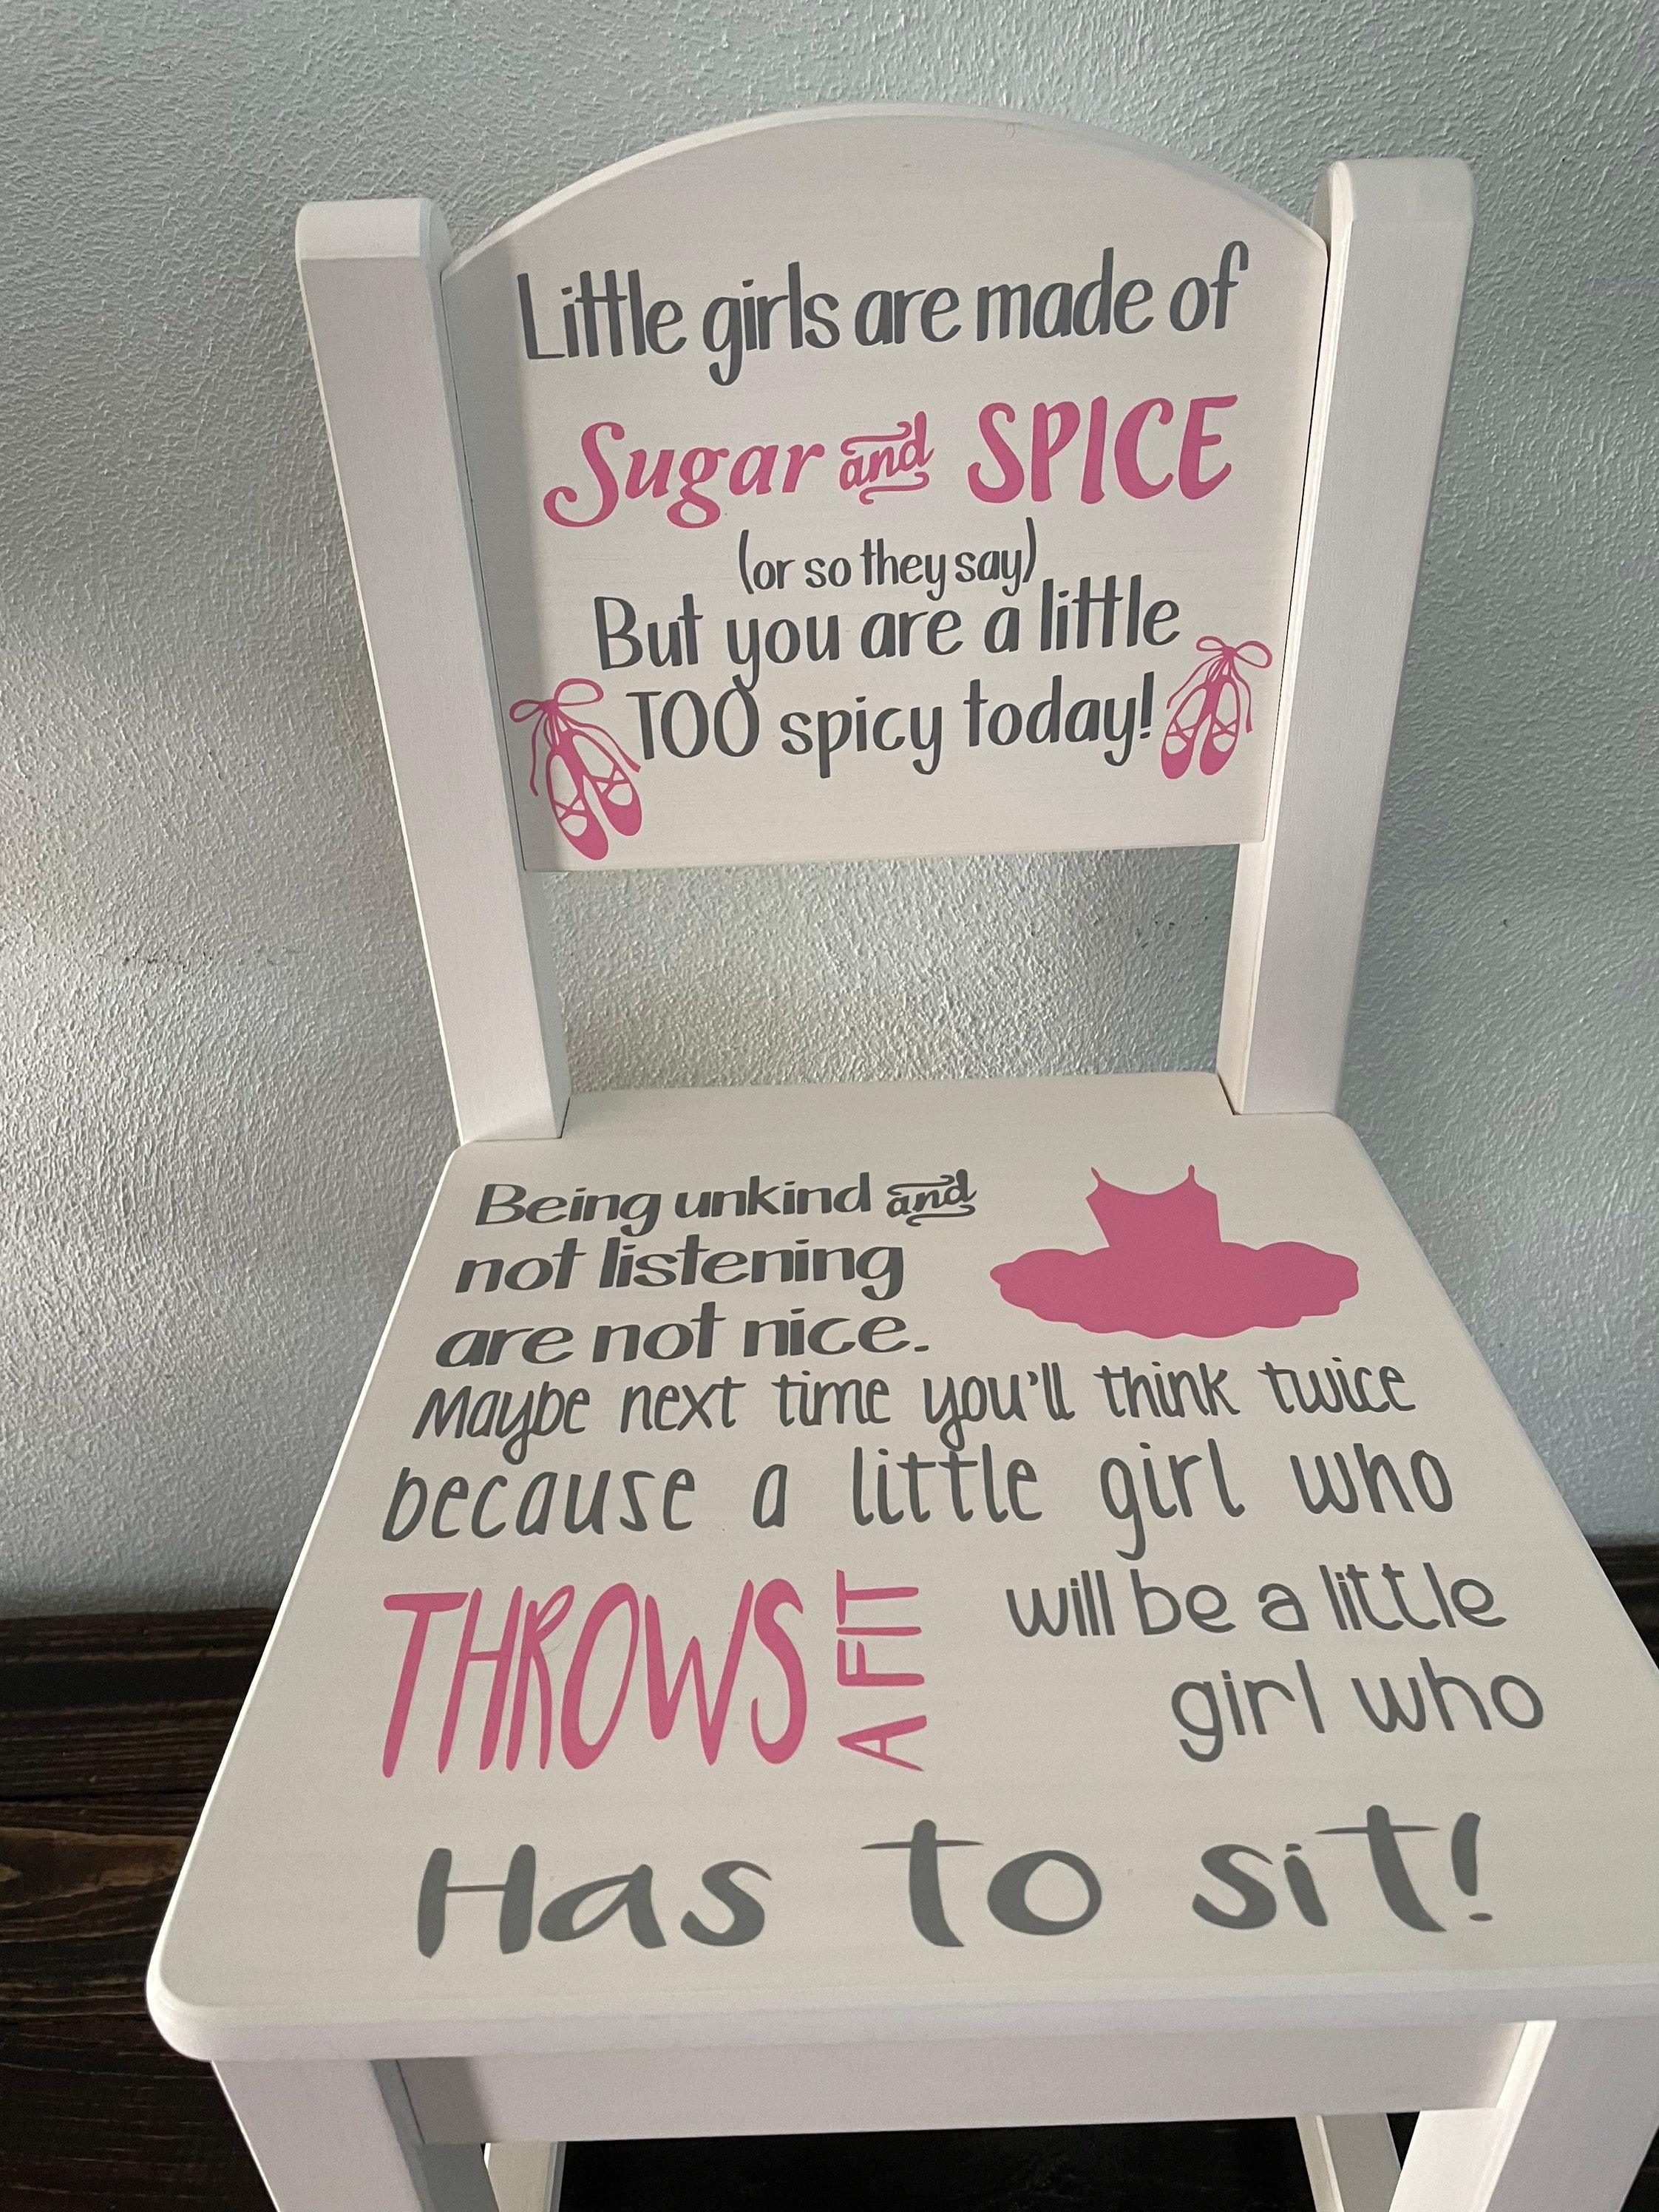 Little girls are made of
Sugar and SPICE
(or so they say)
But you are a little
TOO spicy today!
Being unkind and
not listening
are not nice.
Maybe next time you'll think twice
because a little girl who
THROWS A FIT will be a little
girl who
Has to sit!